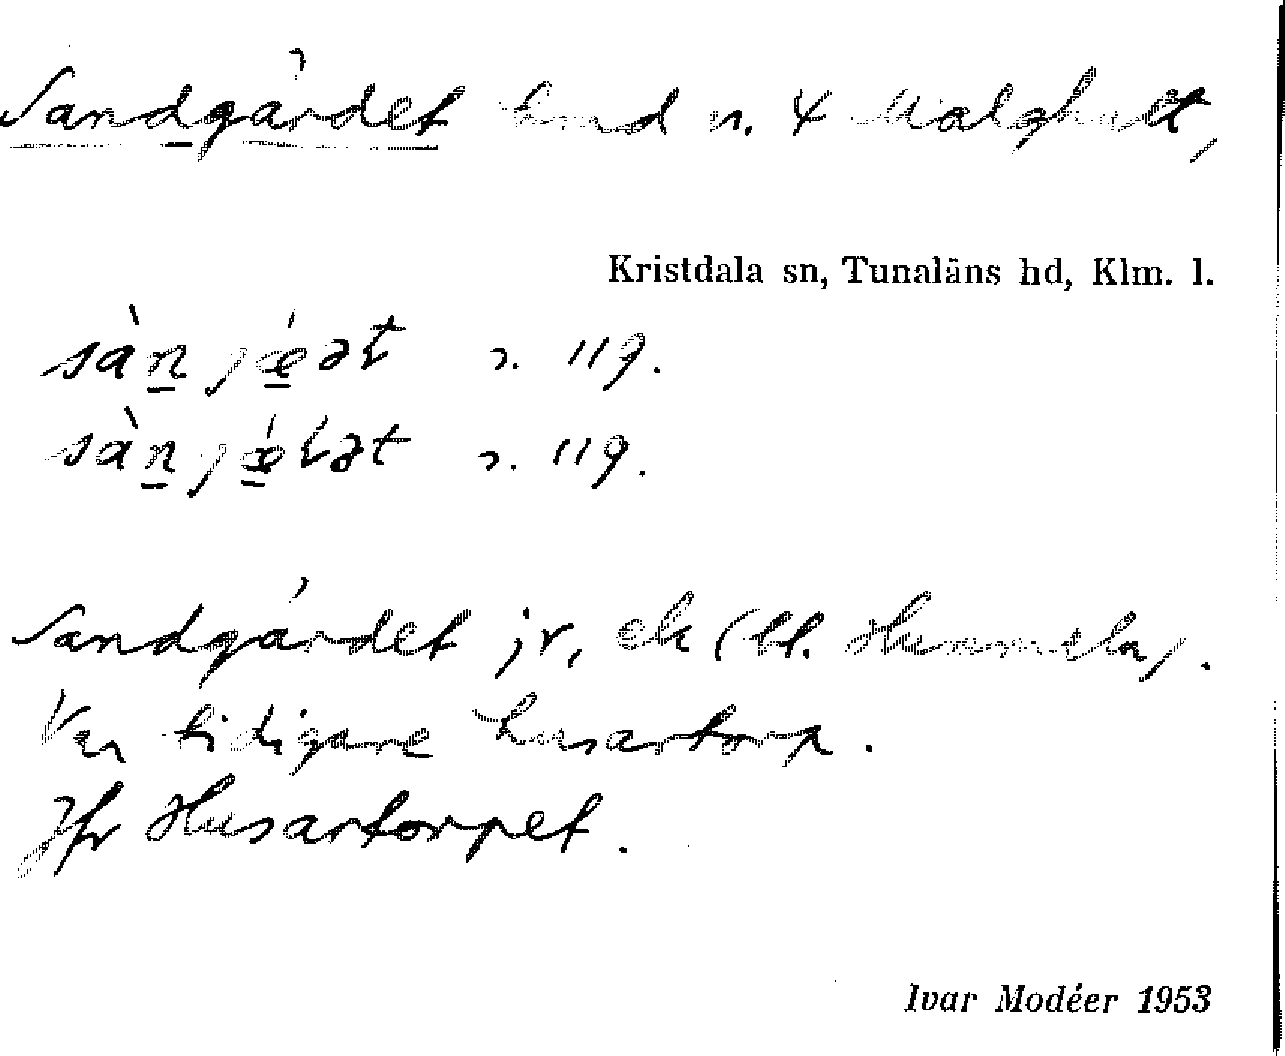 Sandgärdet hmd n. 4 Malghult,
Kristdala sn, Tunaläns hd, Klm. l.
sàn̲ jǽ̲ət s. 119.
sàn̲ jǽ̲ɽət s. 119.
Sandgärdet jr, ek (bl. Hummeln).
Var tidigare husartorp.
Jfr Husartorpet.
Ivar Modéer 1953